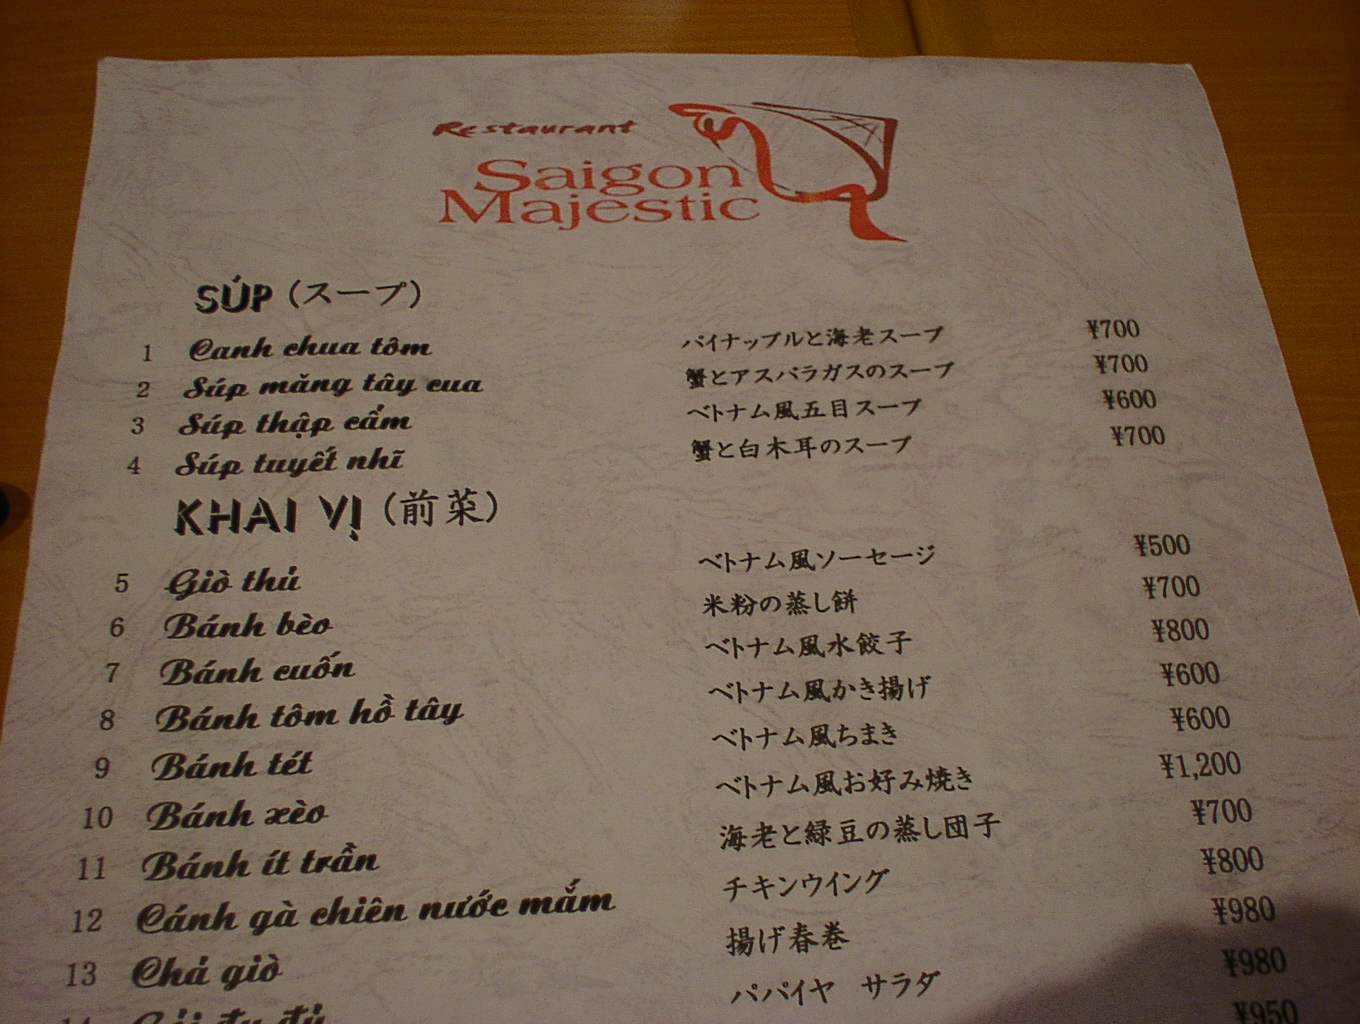 Restaurant
Saigon
Majestic
SÚP (スープ)
1 Canh chua tôm パイナップルと海老スープ ¥700
2 Súp măng tây cua 蟹とアスパラガスのスープ ¥700
3 Súp thập cẩm ベトナム風五目スープ ¥600
4 Súp tuyết nhĩ 蟹と白木耳のスープ ¥700
KHAI VỊ (前菜)
5 Giò thủ ベトナム風ソーセージ ¥500
6 Bánh bèo 米粉の蒸し餅 ¥700
7 Bánh cuốn ベトナム風水餃子 ¥800
8 Bánh tôm hồ tây ベトナム風かき揚げ ¥600
9 Bánh tét ベトナム風ちまき ¥600
10 Bánh xèo ベトナム風お好み焼き ¥1,200
11 Bánh ít trần 海老と緑豆の蒸し団子 ¥700
12 Cánh gà chiên nước mắm チキンウイング ¥800
13 Chả giò 揚げ春巻 ¥980
14 Gỏi đu đủ パパイヤ サラダ ¥980
¥950